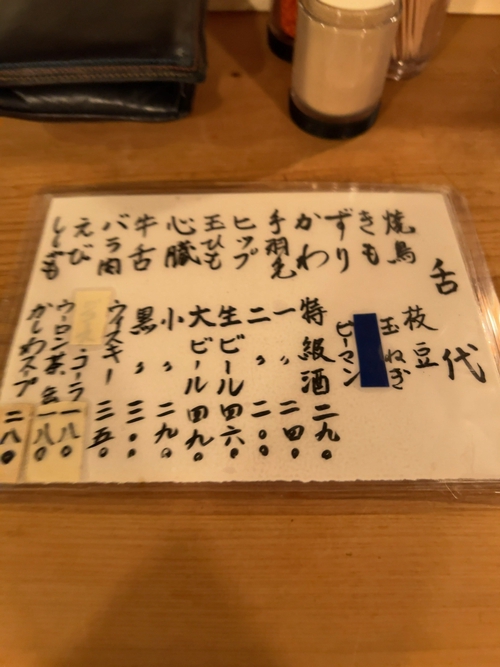 舌代
焼鳥
きも
ずり
かわ
手羽
ヒップ
玉ひも
心臓
牛舌
バラ肉
えび
枝豆
玉ねぎ
ピーマン
特級酒 二九〇
一 〃 二四〇
二 〃 二〇〇
生ビール 四六〇
大ビール 四九〇
小 〃 二九〇
黒 〃 三〇〇
ウィスキー 三五〇
コーラ 一八〇
ウーロン茶 一八〇
かしわスープ 二八〇